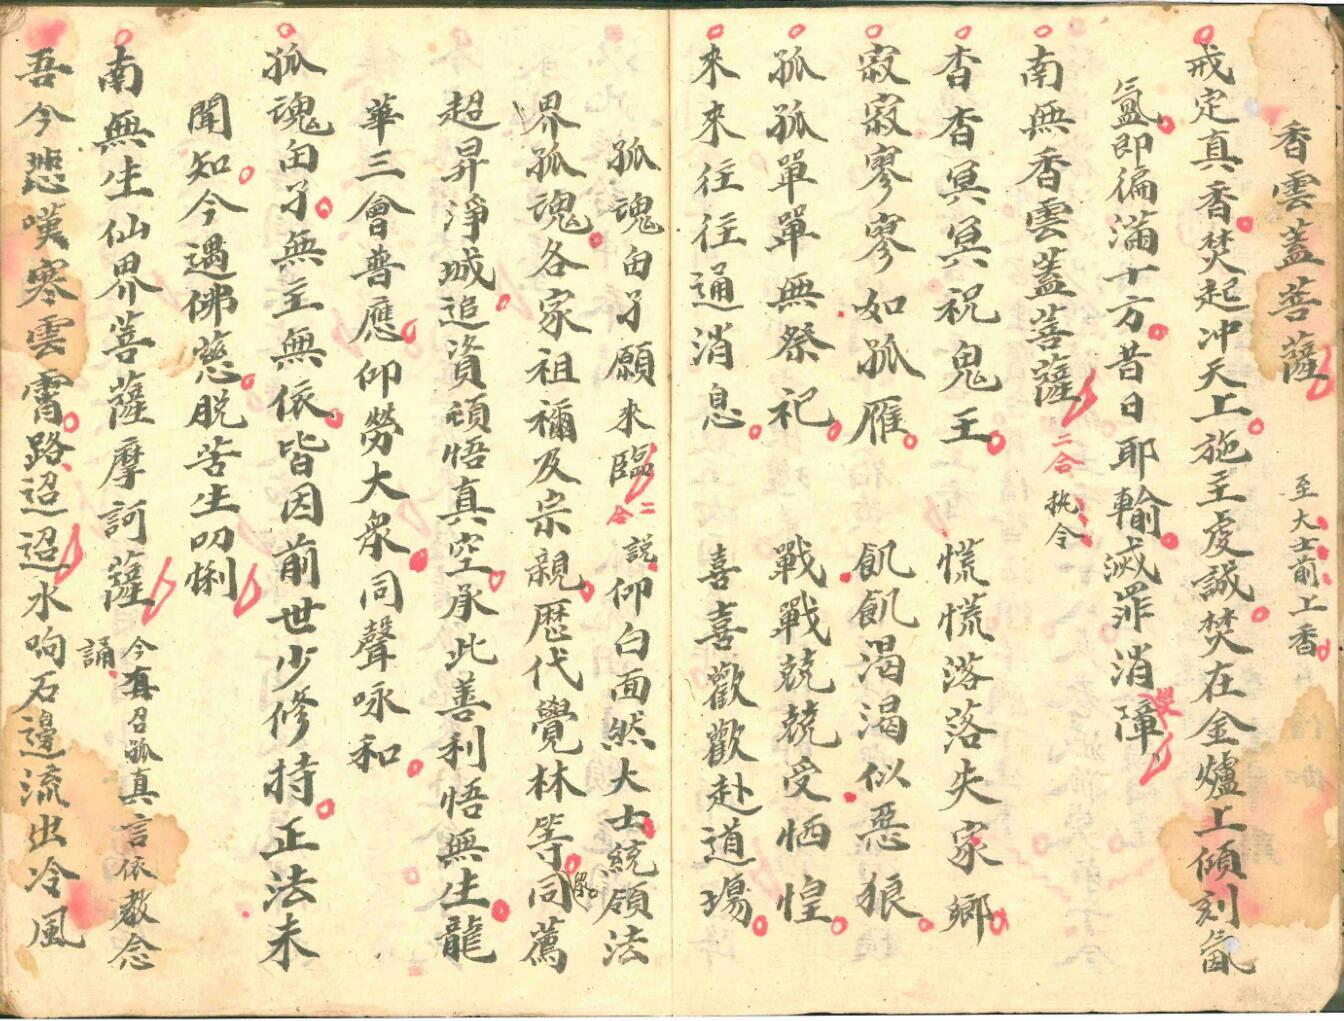 香雲蓋菩薩 至大士前上香
戒定真香焚起冲天上施主虔誠焚在金爐上傾刻氤
氳即徧滿十方昔日耶輸滅罪消障
南無香雲蓋菩薩 二合 执令
杳杳冥冥祝鬼王 慌慌落落失家鄉
寂寂寥寥如孤雁 飢飢渴渴似惡狼
孤孤單單無祭祀 戰戰兢兢受恓惶
來來往往通消息 喜喜歡歡赴道場
孤魂由子願來臨 二合 説仰白面然大士統領法
界孤魂各家祖禰及宗親歷代覺林等同薦
超昇淨城追資頓悟真空承此善利悟無生龍
華三會普應仰勞大衆同聲咏和
孤魂由子無主無依皆因前世少修持正法未
聞知今遇佛慈脱苦生忉悧
南無生仙界菩薩摩訶薩 今有召孤真言依教念
誦
吾今悲嘆寒雲霄路迢迢水响石邊流出冷風